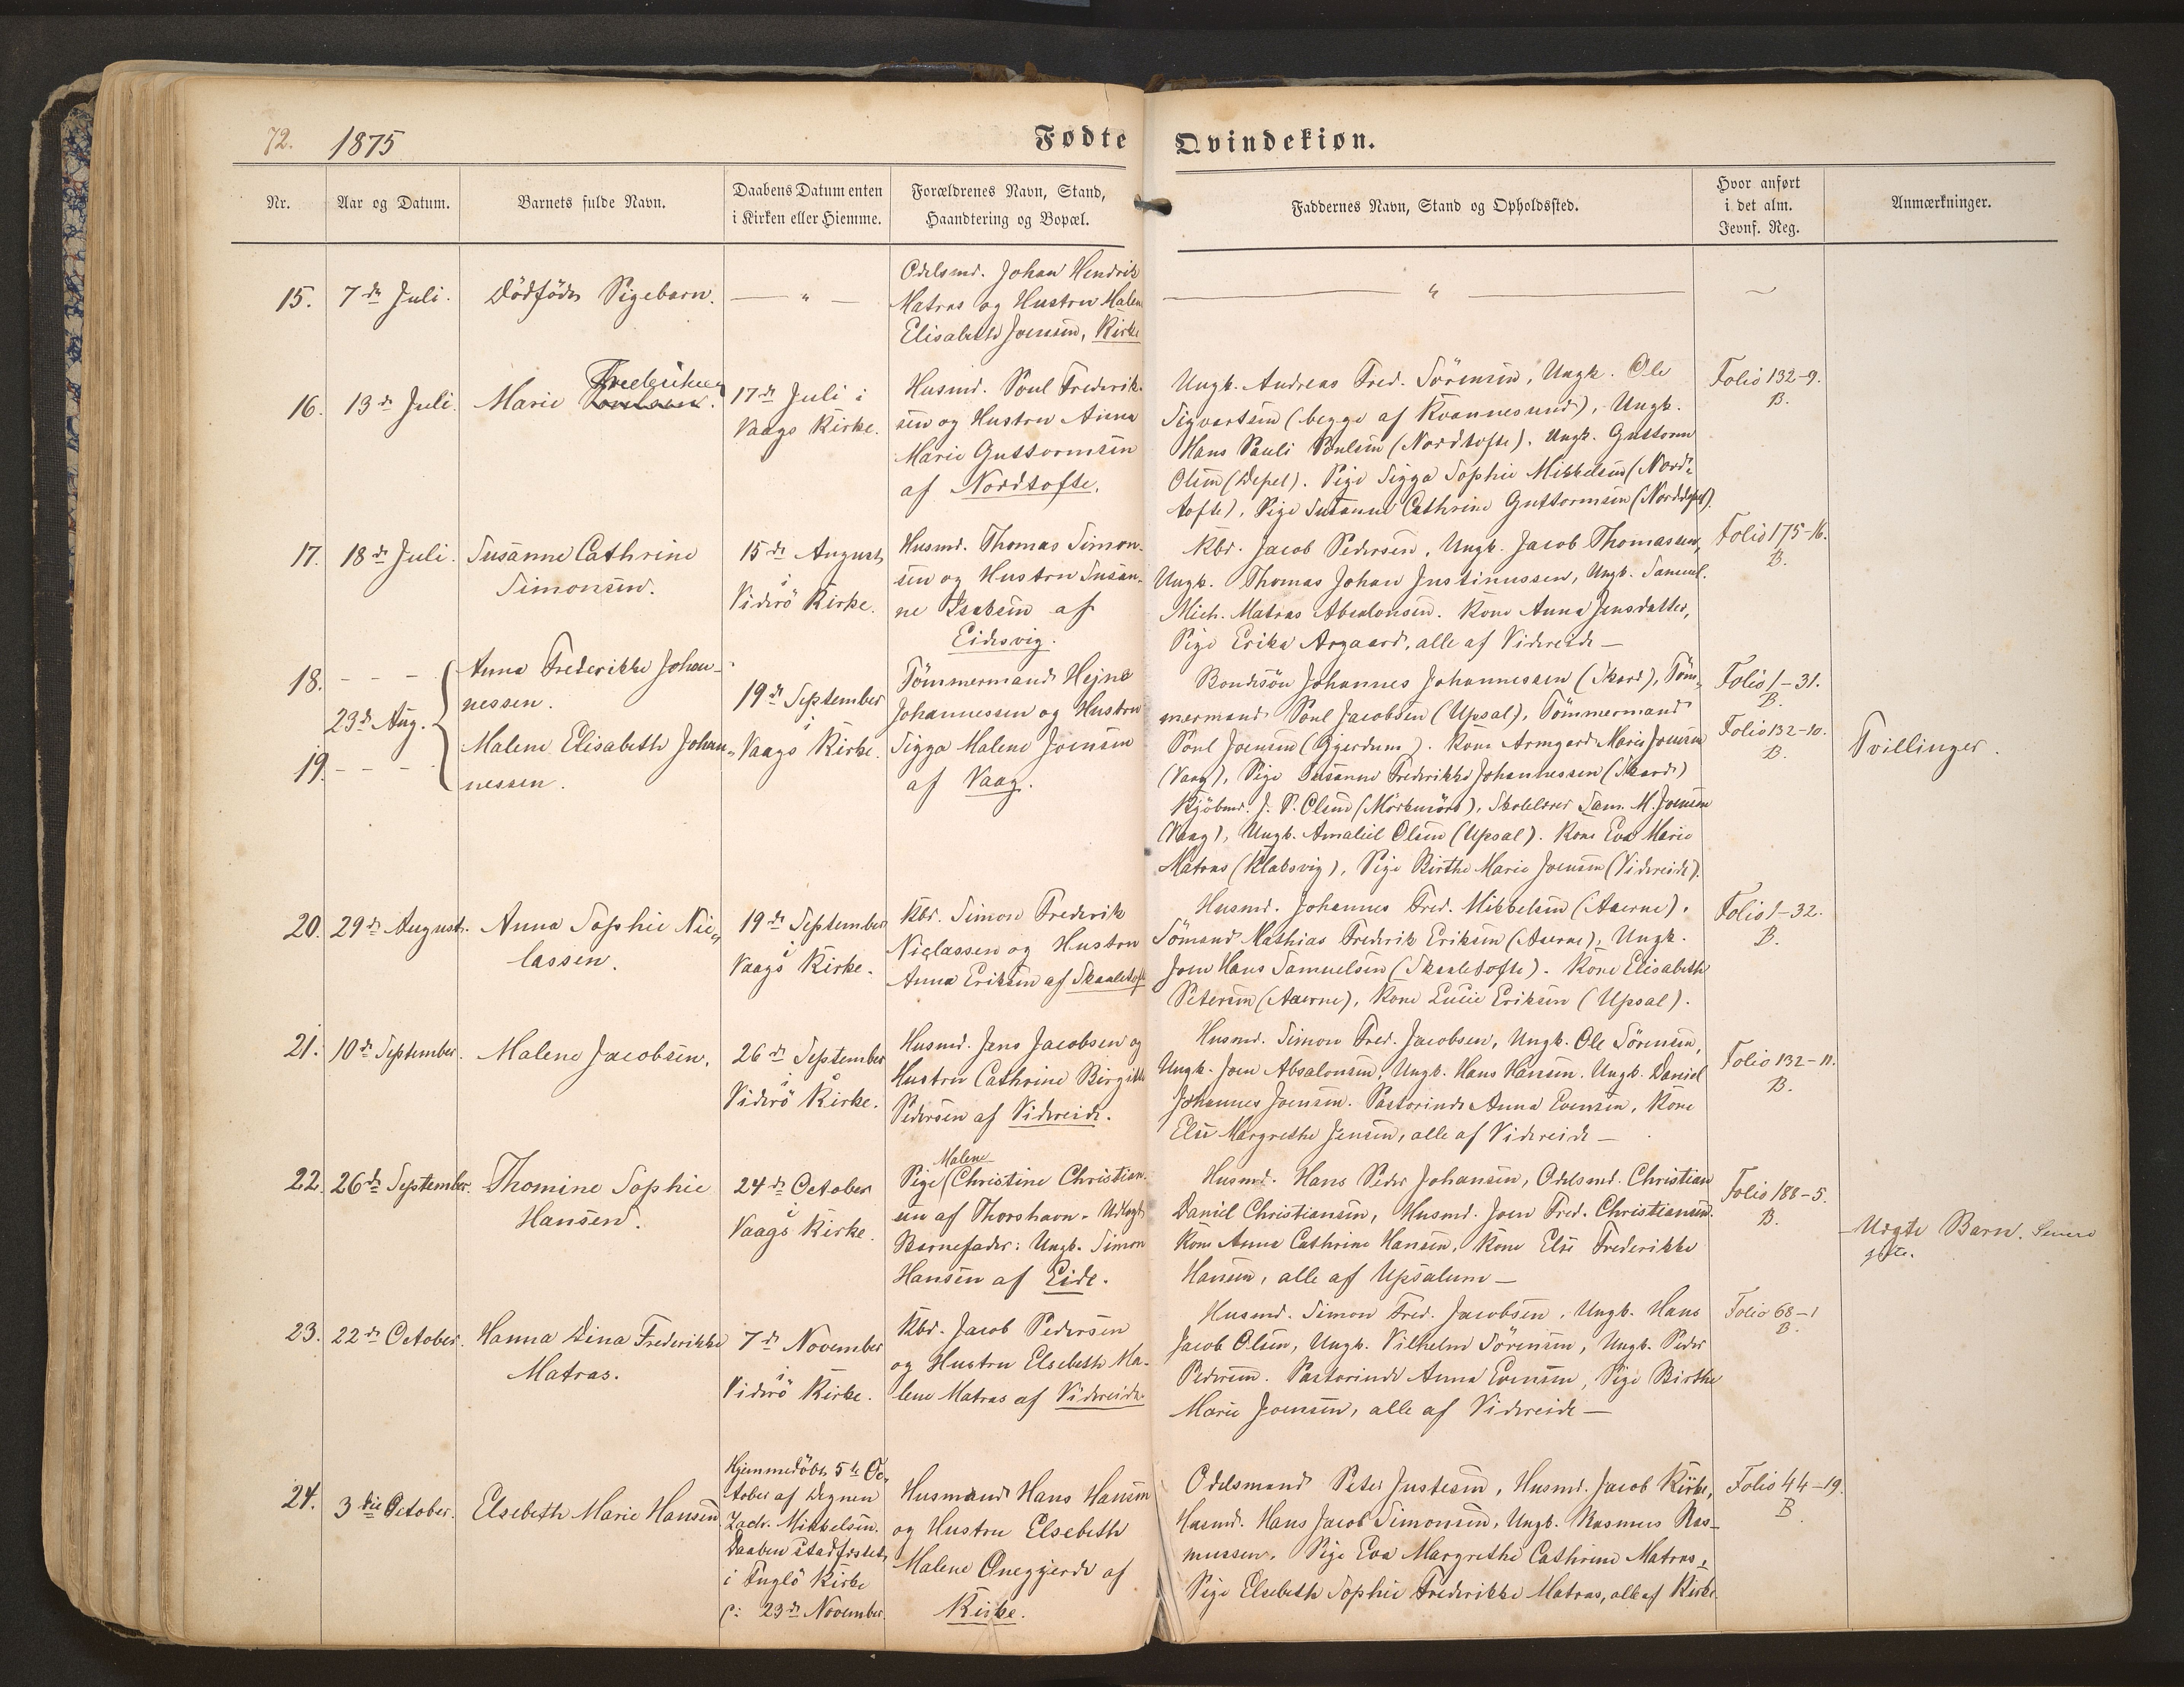 72. 1875
Fødte Qvindekiøn.
Nr.
Aar og Datum.
Barnets fulde Navn.
Daabens Datum enten
i Kirken eller Hiemme.
Forældrenes Navn, Stand,
Haandtering og Bopæl.
Faddernes Navn, Stand og Opholdssted.
Hvor anført
i det alm.
Jevnf. Reg.
Anmærkninger.
15. 7de Juli. Dödföde Pigebarn. — " —
Odelsmd. Johan Hendrik
Matras og Hustru Malene
Elisabeth Joensen, Kirke
— " —
16. 13de Juli. Marie Frederiksen Poulsen.
17de Juli i
Vaags Kirke.
Husmd. Poul Frederik-
sen og Hustru Anna
Marie Guttormsen
af Nordtofte.
Ungk. Andreas Fred. Sörensen, Ungk. Ole
Sigvartsen (begge af Kvannesund), Ungk.
Hans Pauli Poulsen (Nordtofte). Ungk. Guttorm
Olsen (Depel). Pige Sigga Sophie Mikkelsen (Nord-
tofte), Pige Susanne Cathrine Guttormsen (Norddepel).
Folio 132-9.
B.
17. 18de Juli. Susanne Cathrine
Simonsen.
15de August
i
Viderö Kirke.
Husmd. Thomas Simon-
sen og Hustru Susan-
ne Isaksen af
Eidesvig.
Kbr. Jacob Pedersen, Ungk. Jacob Thomassen,
Ungk. Thomas Johan Justinussen, Ungk. Samuel
Mich. Matras Absalonsen. Kone Anna Jensdatter,
Pige Erika Argaard, alle af Videreide —
Folio 175-16.
B.
18. - - -
23de Aug.
19. - - -
Anna Frederikke Johan-
nessen.
Malene Elisabeth Johan-
nessen.
19de September
i
Vaags Kirke.
Tömmermand Hejne
Johannessen og Hustru
Sigga Malene Joensen
af Vaag.
Bondesön Johannes Johannessen (Skard), Töm-
mermand Poul Jacobsen (Upsal), Tömmermand
Poul Joensen (Gjerdum). Kone Armgard Marie Joensen
(Vaag), Pige Susanne Frederikke Johannessen (Skard)
Kjöbmd. J. P. Olsen (Mörkenöre), Skolelærer Sam. M. Joensen
(Vaag), Ungk. Amaliel Olsen (Upsal). Kone Eva Marie
Matras (Klaksvig), Pige Birthe Marie Joensen (Videreide).
Folio 1-31.
B.
Folio 132-10.
B.
Tvillinger.
20. 29de August. Anna Sophie Nic-
lassen.
19de September
i
Vaags Kirke.
Kbr. Simon Frederik
Niclassen og Hustru
Anna Eriksen af Skaaletofte
Husmd. Johannes Fred. Mikkelsen (Aaerne).
Sömand Mathias Frederik Eriksen (Aaerne), Ungk.
Joen Hans Samuelsen (Skaaletofte). Kone Elisabeth
Petersen (Aaerne), Kone Lucie Eriksen (Upsal).
Folio 1-32.
B.
21. 10de September. Malene Jacobsen.
26de September
i
Viderö Kirke.
Husmd. Jens Jacobsen og
Hustru Cathrine Birgitte
Pedersen af Videreide.
Husmd. Simon Fred. Jacobsen, Ungk. Ole Sörensen,
Ungk. Joen Absalonsen, Ungk. Hans Hansen. Ungk. Daniel
Johannes Joensen. Pastorinde Anna Evensen, Kone
Else Margrethe Jensen, alle af Videreide —
Folio 132-11.
B.
22. 26de September. Thomine Sophie
Hansen.
24de October
i
Vaags Kirke.
Malene
Pige (Christine Christian-
sen af Thorshavn. Udlagt
Barnefader: Ungk. Simon
Hansen af Eide.
Husmd. Hans Peder Johansen, Odelsmd. Christian
Daniel Christiansen, Husmd. Joen Fred. Christiansen.
Kone Anna Cathrine Hansen, Kone Else Frederikke
Hansen, alle af Upsalum —
Folio 188-5.
B.
Uægte Barn. Senere
gifte.
23. 22de October. Hanna Dina Frederikke
Matras.
7de November
i
Viderö Kirke.
Kbr. Jacob Pedersen
og Hustru Elsebeth Ma-
lene Matras af Videreide.
Husmd. Simon Fred. Jacobsen, Ungk. Hans
Jacob Olsen, Ungk. Vilhelm Sörensen, Ungk. Peder
Pedersen. Pastorinde Anna Evensen, Pige Birthe
Marie Joensen, alle af Videreide —
Folio 68-1
B.
24. 3die October. Elsebeth Marie Hansen
Hjemmedöbt 5te Oc-
tober af Degnen
Zachr. Mikkelsen.
Daaben stadfæstet
i Fuglö Kirke
p: 23de November.
Husmand Hans Hansen
og Hustru Elsebeth
Malene Öneggjerde af
Kirke.
Odelsmand Peter Justesen, Husmd. Jacob Kirke,
Husmd. Hans Jacob Simonsen, Ungk. Rasmus Ras-
mussen. Pige Eva Margrethe Cathrine Matras,
Pige Elsebeth Sophie Frederikke Matras, alle af Kirke.
Folio 44-19.
B.